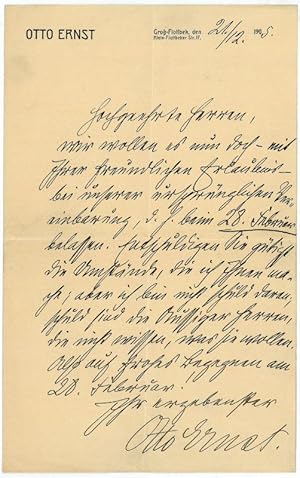 OTTO ERNST
Groß-Flottbek, den 21/12. 1905.
Klein-Flottbeker Str. 17.
Hochgeehrte Herren,
wir wollen es nun doch – mit
Ihrer freundlichen Erlaubnis –
bei unserer ursprünglichen Ver-
einbarung, d. h. beim 28. Februar
belassen. Entschuldigen Sie gütigst
die Umstände, die ich Ihnen ma-
che; aber ich bin nicht schuld daran,
schuld sind die Aussiger Herren,
die nicht wissen, was sie wollen.
Also auf frohes Begegnen am
28. Februar!
Ihr ergebenster
Otto Ernst.